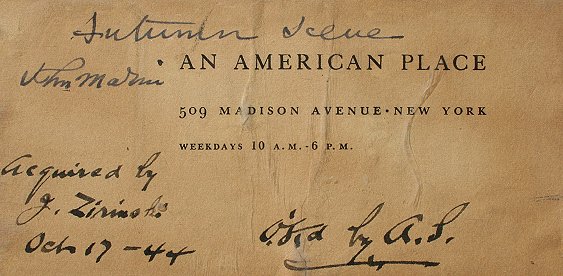 Autumn Scene
John Marin
AN AMERICAN PLACE
509 MADISON AVENUE • NEW YORK
WEEKDAYS 10 A.M.-6 P.M.
Acquired by
J. Zirinski
Oct 17-44
O.K'd by A.S.